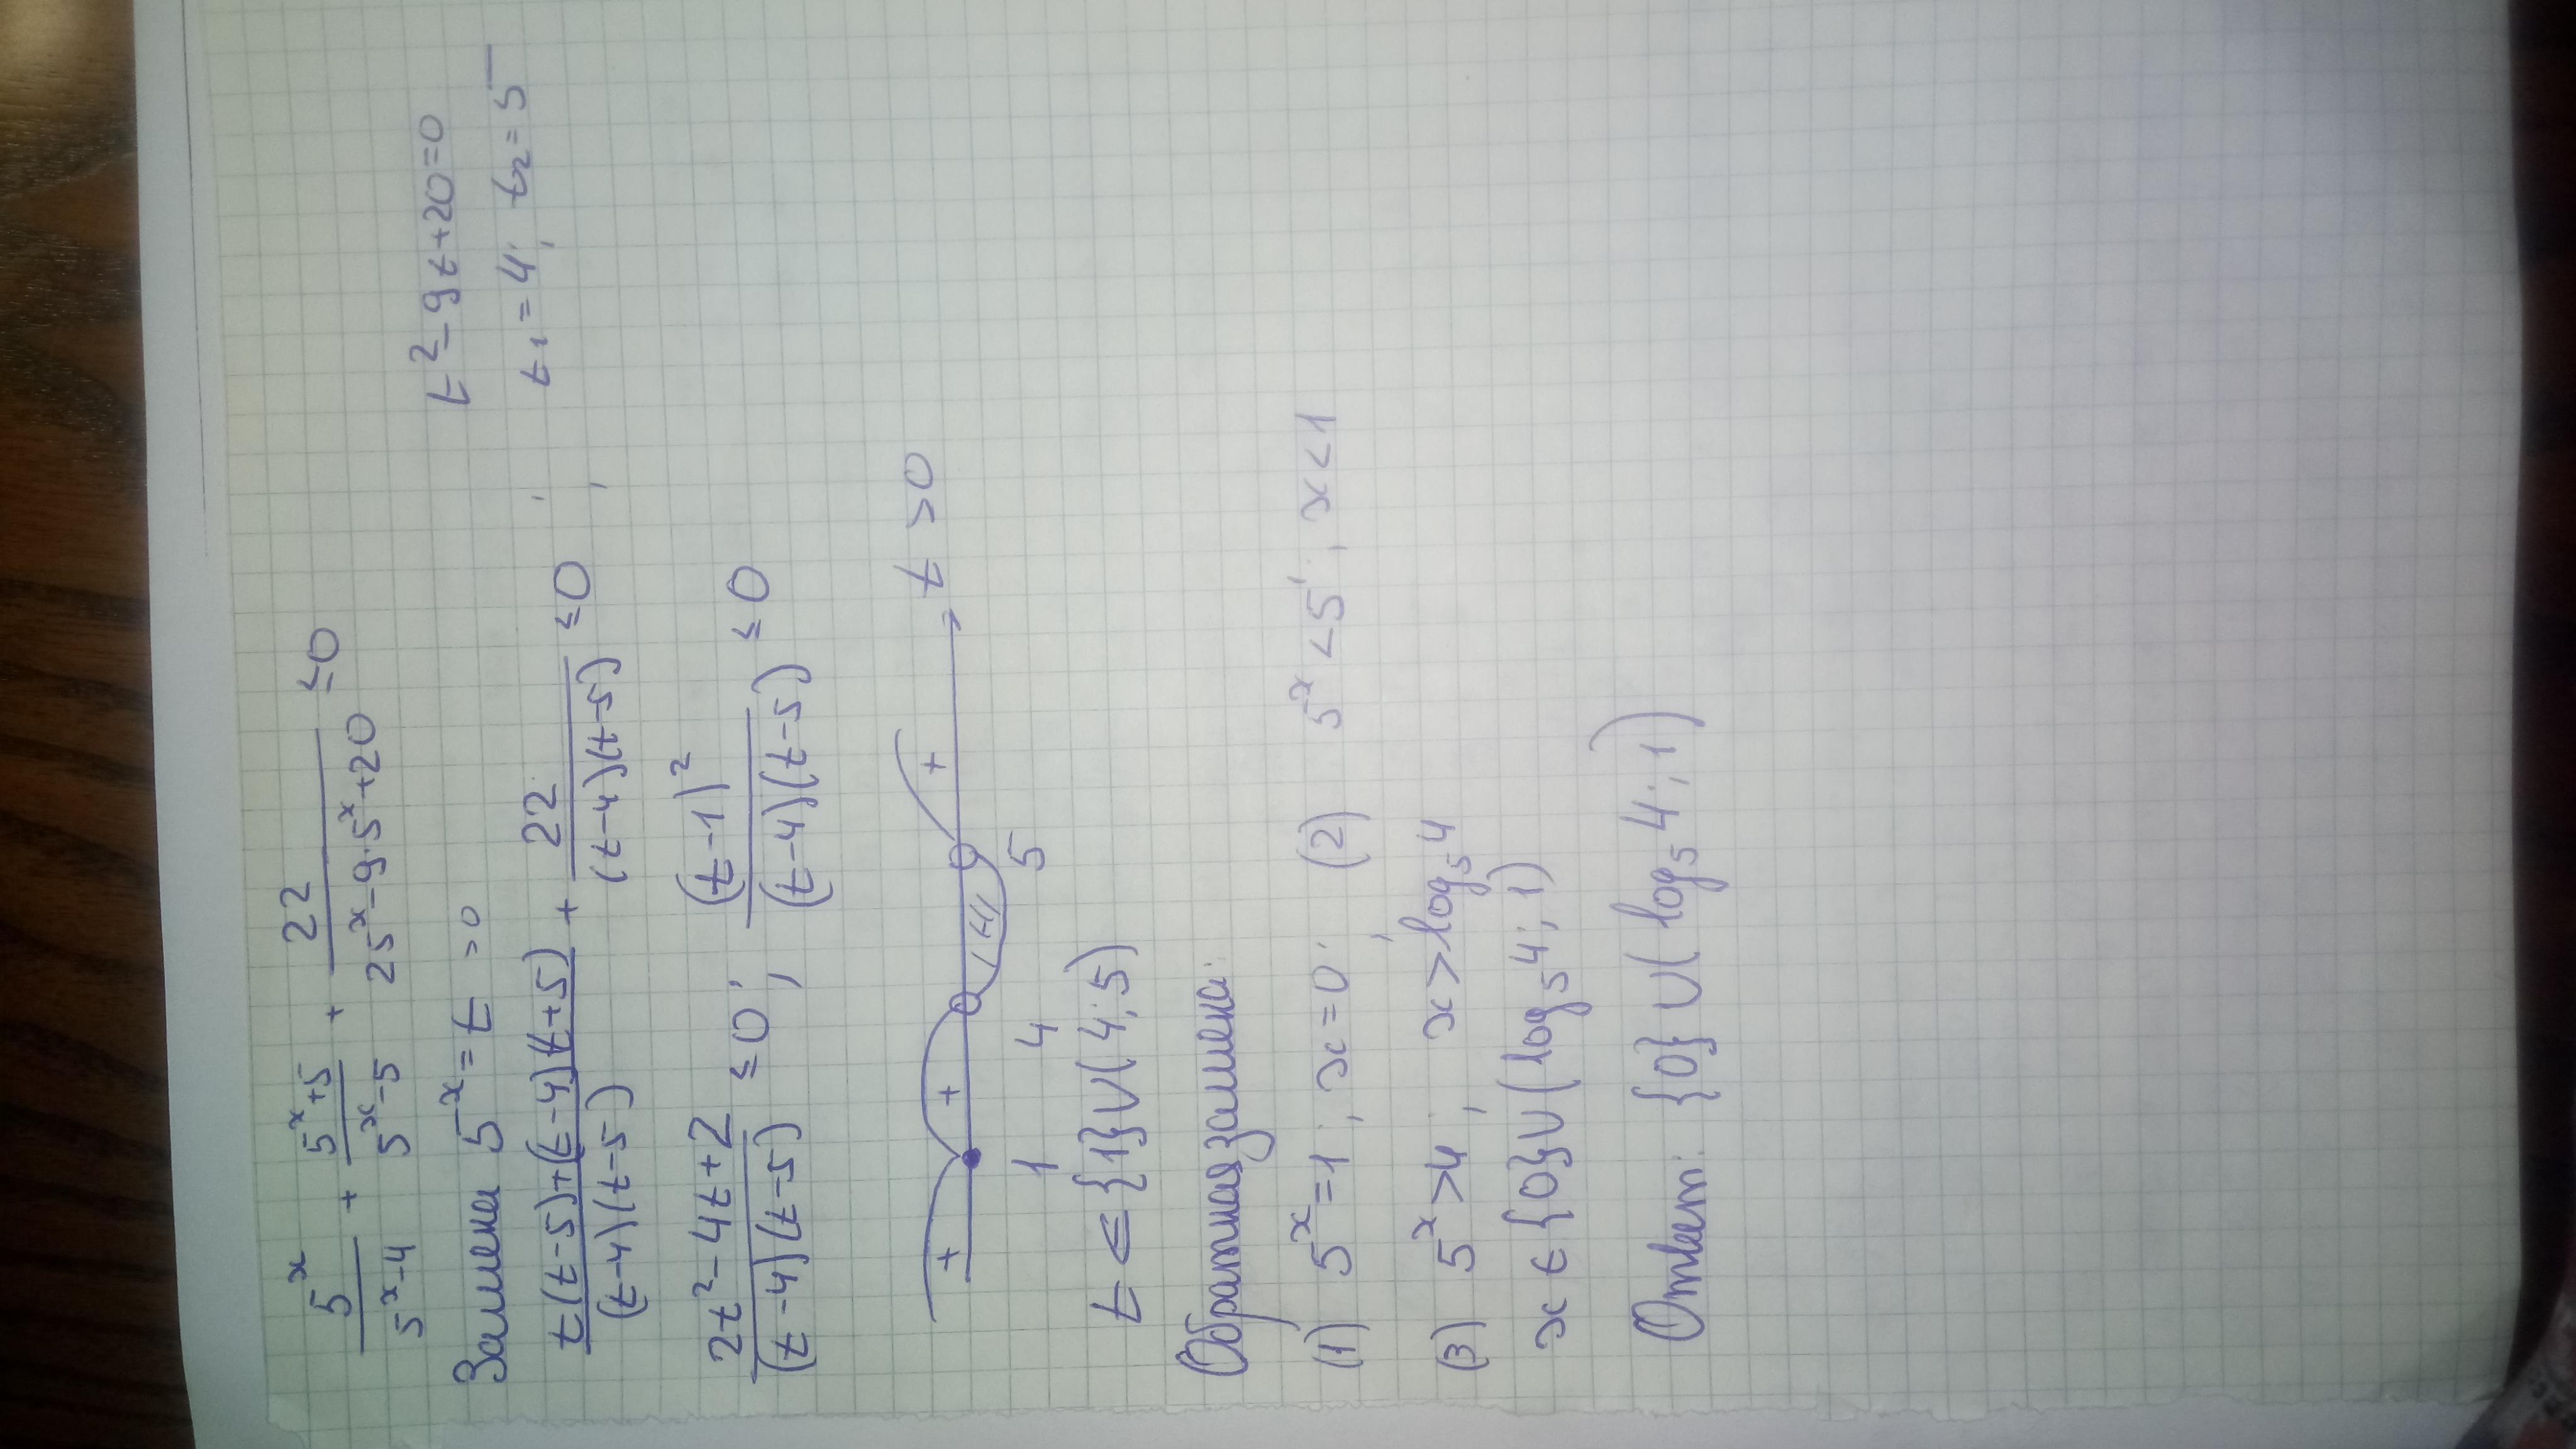 5^x/(5^x-4) + (5^x+5)/(5^x-5) + 22/(25^x-9·5^x+20) ≤0
Замена 5^x=t >0
t^2-9t+20=0
t1=4; t2=5
(t(t-5)+(t-4)(t+5))/((t-4)(t-5)) + 22/((t-4)(t-5)) ≤0;
(2t^2-4t+2)/((t-4)(t-5)) ≤0; (t-1)^2/((t-4)(t-5)) ≤0
+ + - + t>0
1 4 5
t ∈ {1}∪(4;5)
Обратная замена:
(1) 5^x=1; x=0; (2) 5^x<5^1; x<1
(3) 5^x>4; x>log_5 4
x ∈ {0}∪(log_5 4; 1)
Ответ: {0}∪(log_5 4; 1)